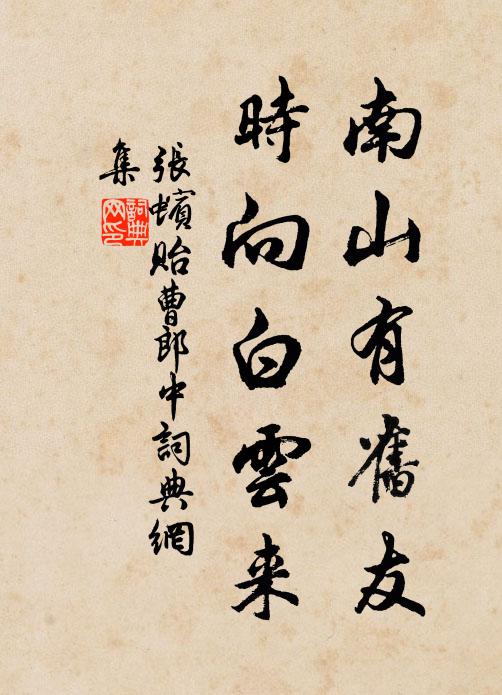 南山有舊友
時向白雲来
張蠙貽曹郎中詞典網
集
詞典
网印